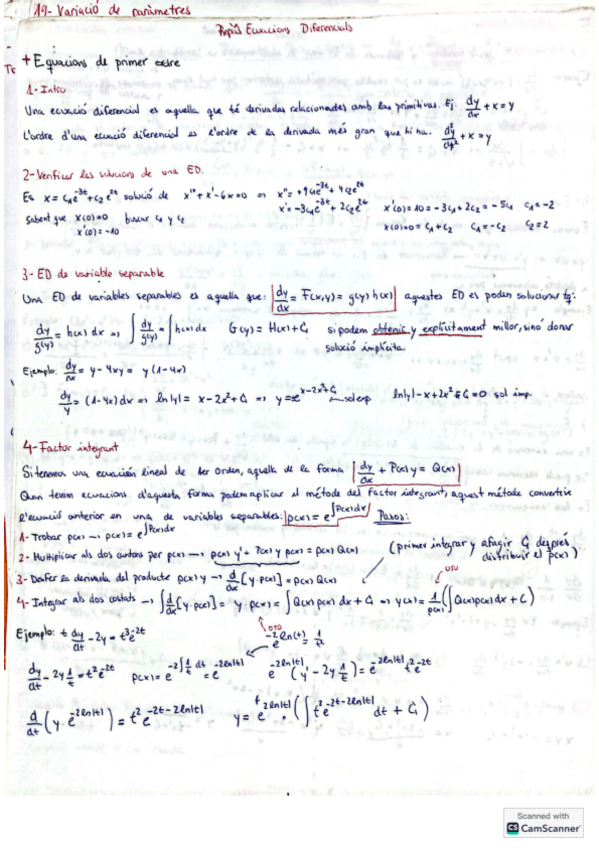 19- Variació de paràmetres
Equacions Diferencials
+ Equacions de primer ordre
1- Intro
Una ecuació diferencial es aquella que té derivades relacionades amb les primitives. Ej: dy/dx + x = y
L'ordre d'una ecuació diferencial es l'ordre de la derivada més gran que hi ha. + x = y
2- Verificar les solucions de una ED.
Es x = C₁e^-3t + C₂e^2t solució de x'' + x' - 6x = 0 ⇒ x'' = +9C₁e^-3t + 4C₂e^2t
x' = -3C₁e^-3t + 2C₂e^2t
x'(0) = -10 = -3C₁ + 2C₂ = -5C₁ C₁ = -2
sabent que x(0)=0 buscar C₁ y C₂ x(0) = 0 = C₁ + C₂ C₁ = -C₂ C₂ = 2
x'(0) = -10
3- ED de variable separable
Una ED de variables separables es aquella que: dy/dx = F(x,y) = g(y) h(x) aquestes ED es poden solucionar tq:
dy/g(y) = h(x) dx ⇒ ∫ dy/g(y) = ∫ h(x) dx G(y) = H(x) + C₁ si podem obtenir y explícitament millor, sinó donar
solució implícita.
Ejemplo: dy/dx = y - 4xy = y (1-4x)
dy/y = (1-4x) dx ⇒ ln|y| = x - 2x² + C₁ ⇒ y = e^x-2x²+C₁ → sol exp ln|y| - x + 2x² C₁ = 0 sol imp.
4- Factor integrant
Si tenemos una ecuación lineal de 1er orden, aquella de la forma dy/dx + P(x) y = Q(x)
Quan tenim ecuacions d'aquesta forma podem aplicar el mètode del factor integrant, aquest mètode converteix
l'ecuació anterior en una de variables separables: p(x) = e^∫P(x)dx Pasos:
1- Trobar p(x) → p(x) = e^∫P(x)dx
2- Multiplicar als dos cantons per p(x) → p(x) y' + P(x) y p(x) = p(x) Q(x)
(primer integrar y afagir C₁ després
distribuir el p(x))
3- Desfer la derivada del producte p(x) y → d/dx [y·p(x)] = p(x) Q(x)
OJO
4- Integrar als dos costats → ∫ d/dx [y·p(x)] = y·p(x) = ∫ Q(x) p(x) dx + C₁ → y(x) = 1/p(x) (∫ Q(x) p(x) dx + C₁)
OJO
Ejemplo: t dy/dt - 2y = t³e^-2t
e^-2ln(t) = 1/t²
dy/dt - 2y 1/t = t²e^-2t p(x) = e^-2∫1/t dt = e^-2ln|t| e^-2ln|t| (y' - 2y 1/t) = e^-2ln|t| t²e^-2t
d/dt (y·e^-2ln|t|) = t² e^-2t-2ln|t| y = e^2ln|t| · (∫ t²e^-2t-2ln|t| dt + C₁)
Scanned with
CS CamScanner